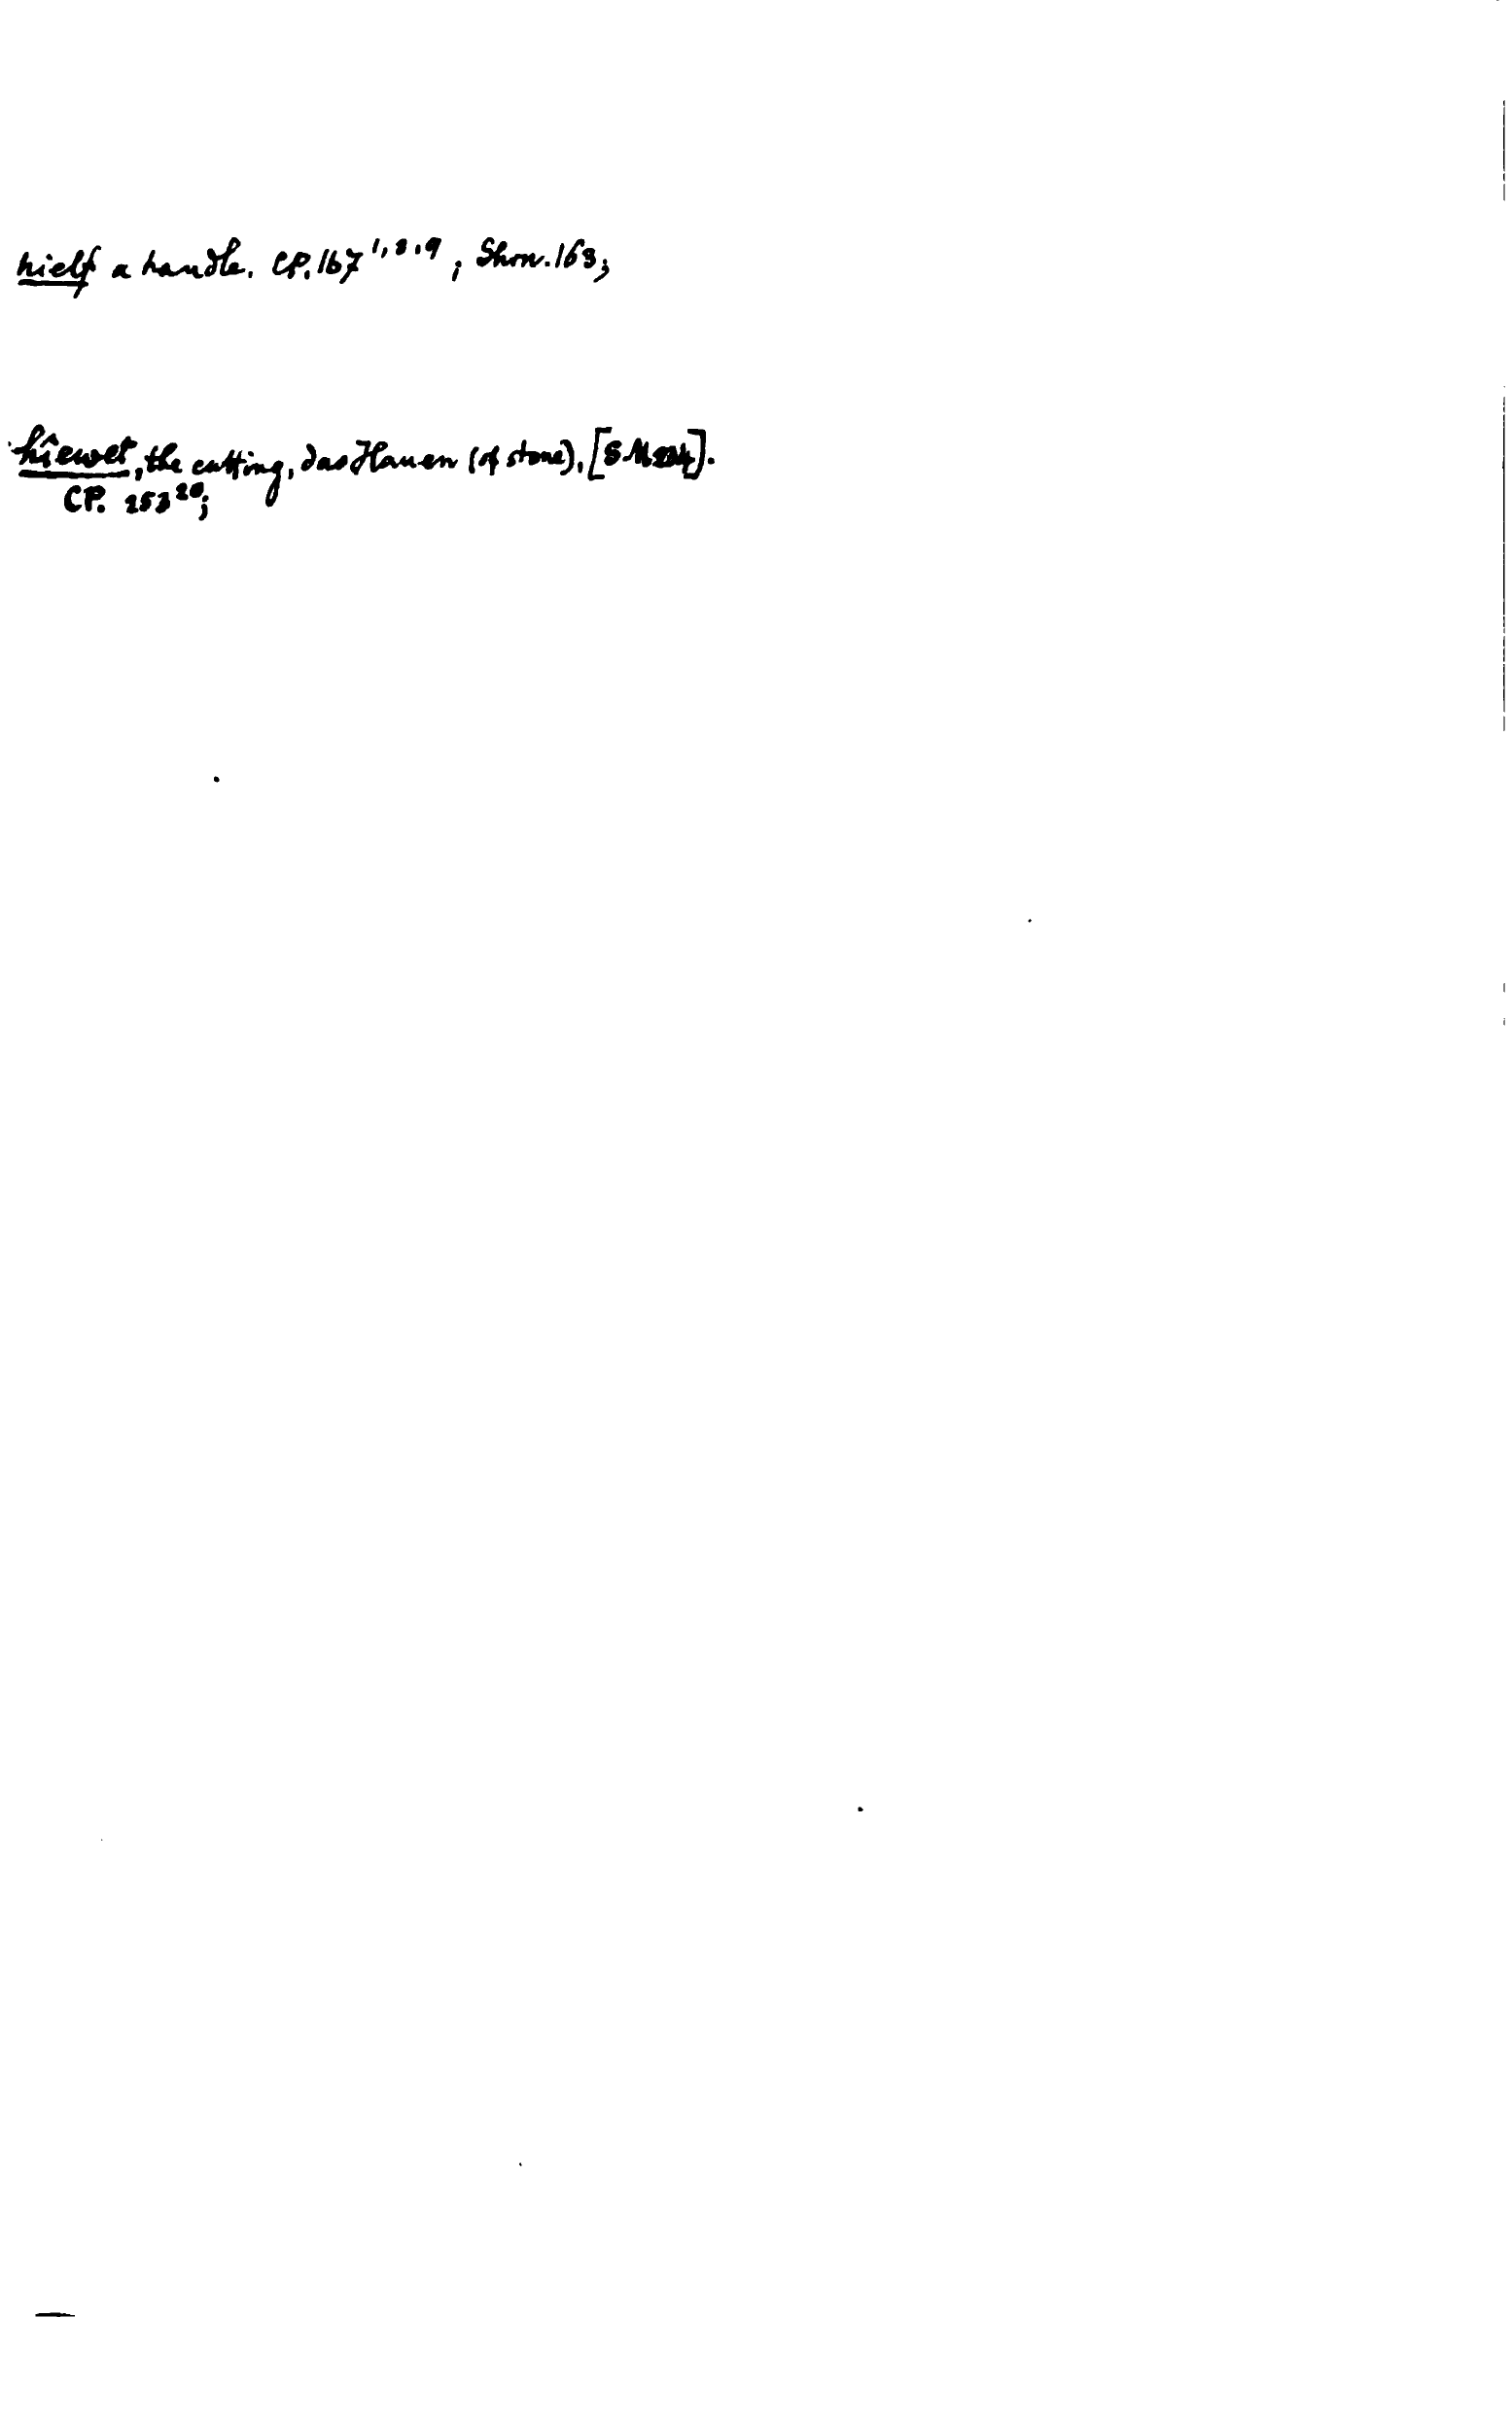 hielf a handle. CP. 167 1, 8, 9; Shrn. 163;
hîewet, the cutting, das Hauen (of stone), [S.M.
CP. 253 20;